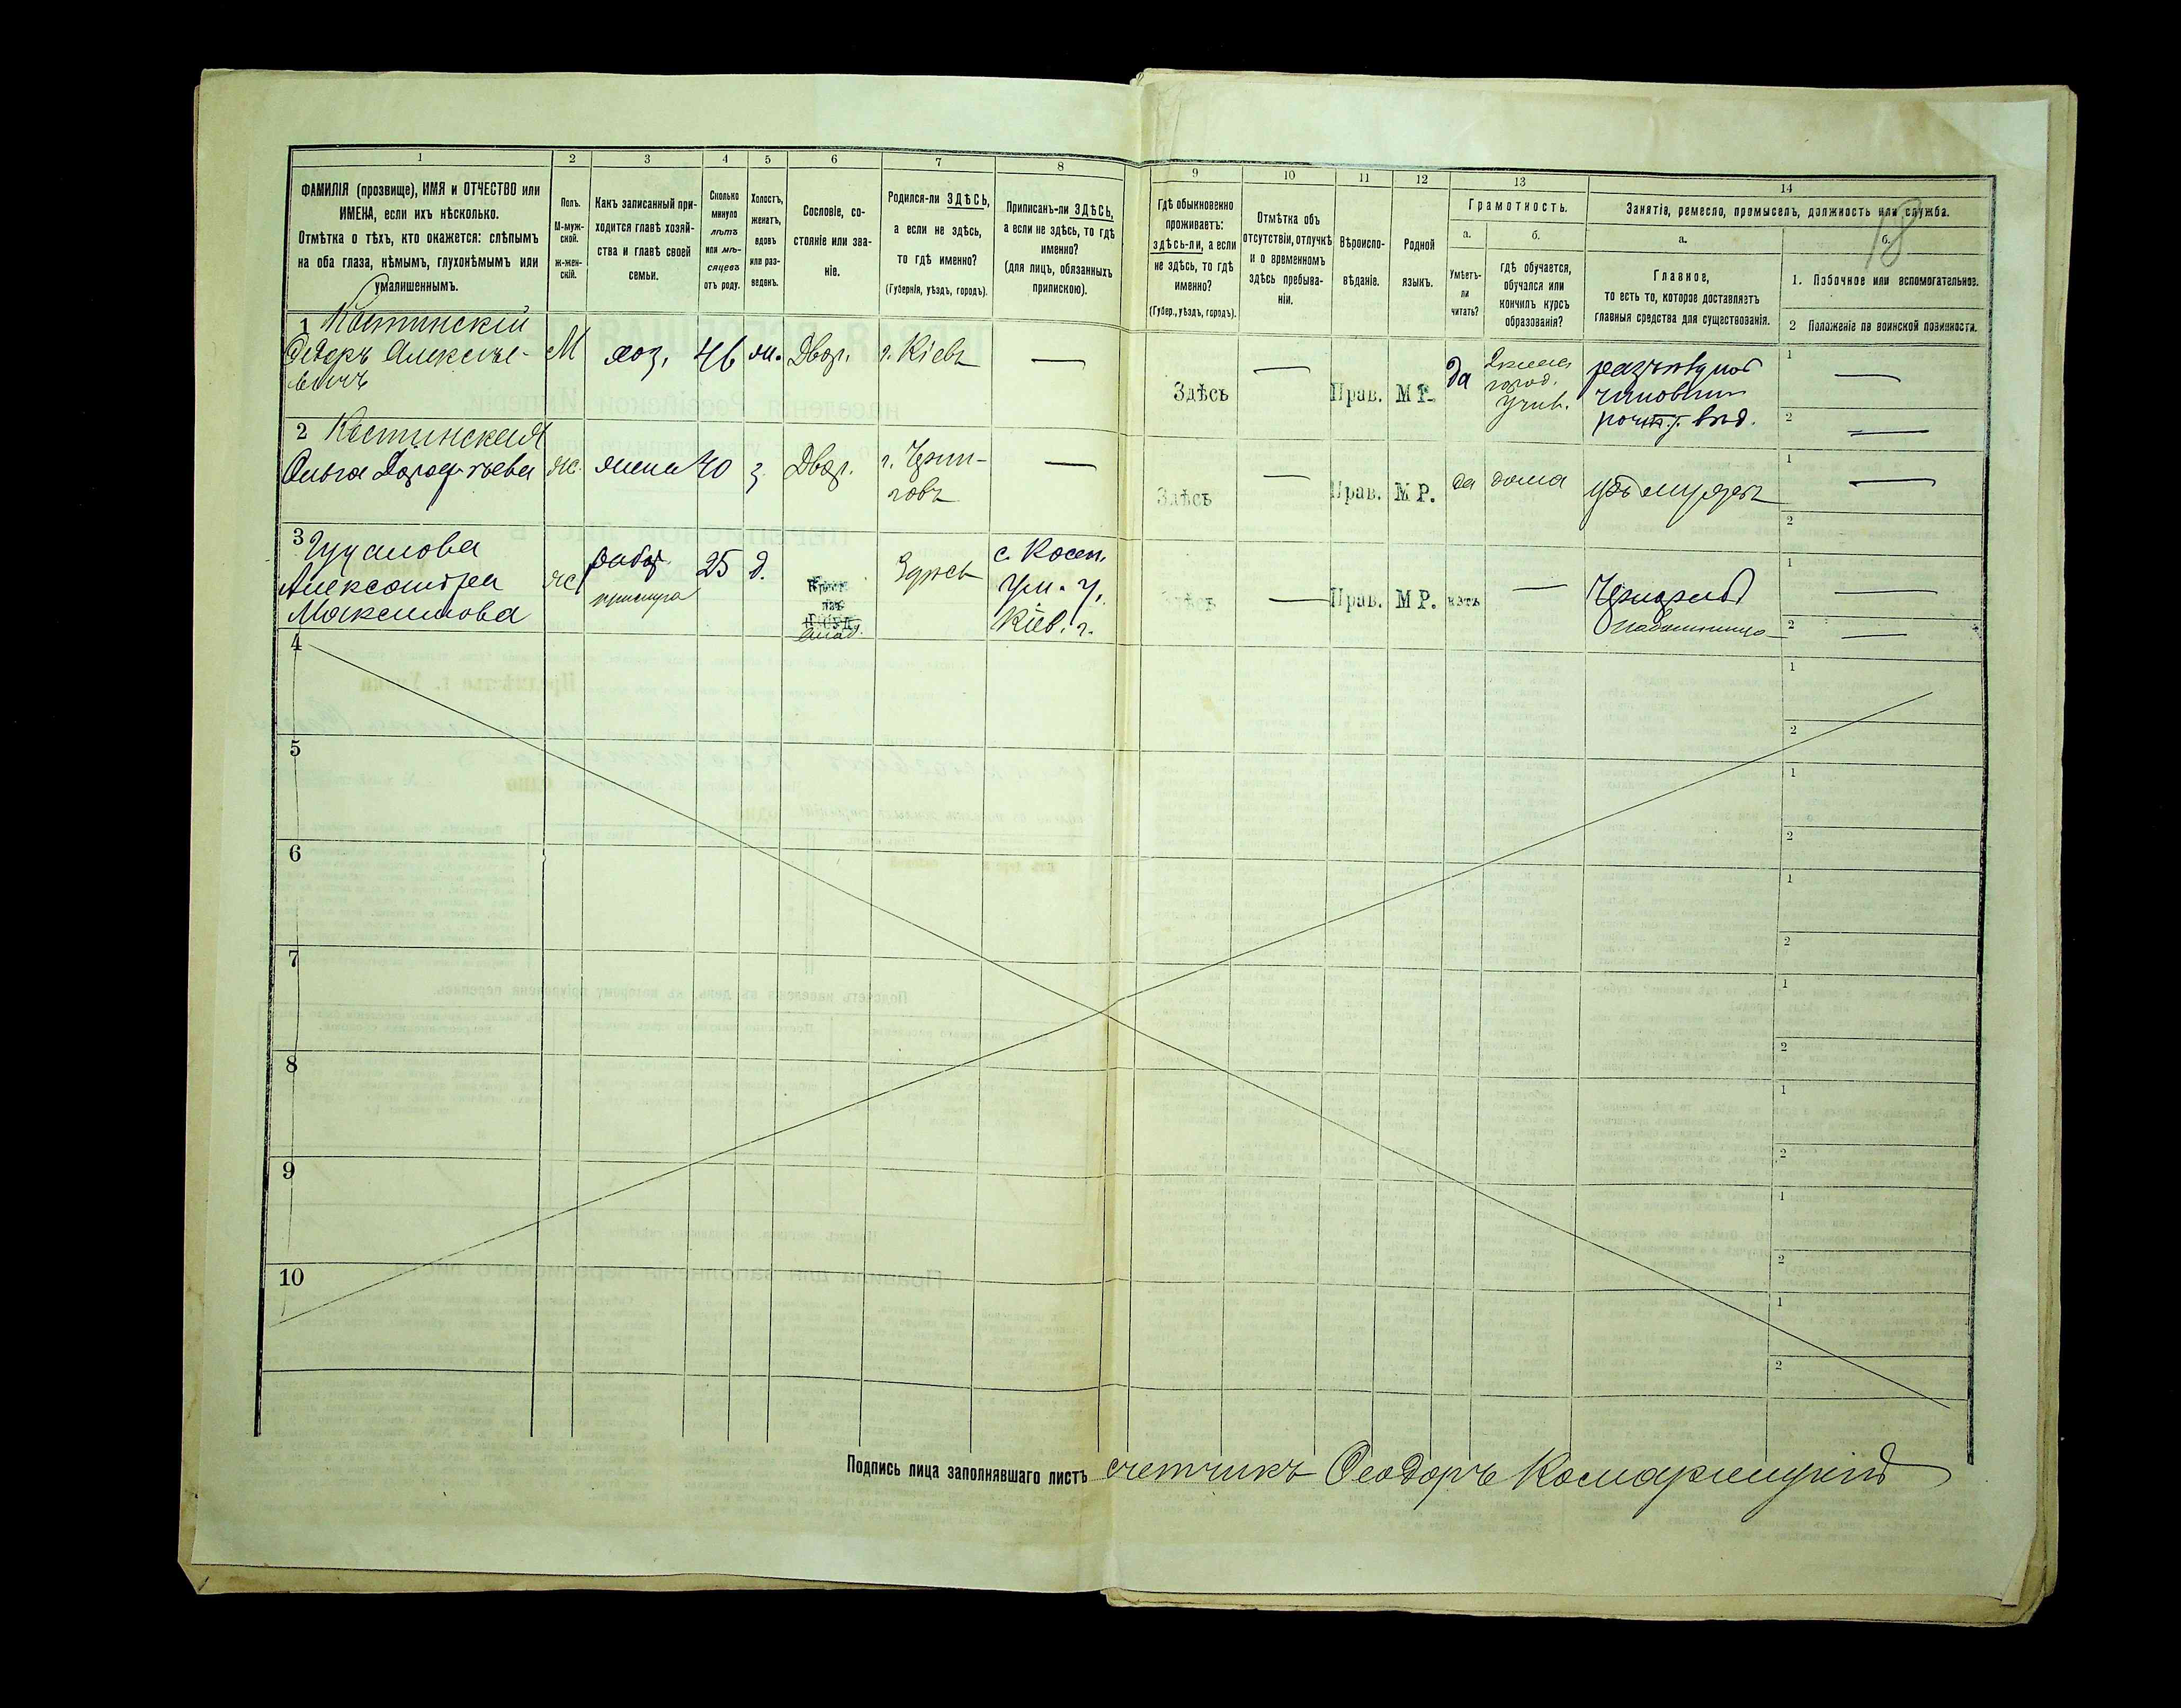 18
1 2 3 4 5 6 7 8 9 10 11 12 13 14
ФАМИЛІЯ (прозвище), ИМЯ и ОТЧЕСТВО или
ИМЕНА, если ихъ нѣсколько.
Отмѣтка о тѣхъ, кто окажется: слѣпымъ
на оба глаза, нѣмымъ, глухонѣмымъ или
умалишеннымъ.
Полъ.
М-муж-
ской.
ж-жен-
скій.
Какъ записанный при-
ходится главѣ хозяй-
ства и главѣ своей
семьи.
Сколько
минуло
лѣтъ
или мѣ-
сяцевъ
отъ роду.
Холостъ,
женатъ,
вдовъ
или раз-
веденъ.
Сословіе, со-
стояніе или зва-
ніе.
Родился-ли ЗДѢСЬ,
а если не здѣсь,
то гдѣ именно?
(Губернія, уѣздъ, городъ).
Приписанъ-ли ЗДѢСЬ,
а если не здѣсь, то гдѣ
именно?
(для лицъ, обязанныхъ
припискою).
Гдѣ обыкновенно
проживаетъ:
здѣсь-ли, а если
не здѣсь, то гдѣ
именно?
(Губер., уѣздъ, городъ).
Отмѣтка объ
отсутствіи, отлучкѣ
и о временномъ
здѣсь пребыва-
ніи.
Вѣроиспо-
вѣданіе.
Родной
языкъ.
Грамотность.
а.
Умѣетъ-
ли
читать?
б.
гдѣ обучается,
обучался или
кончилъ курсъ
образованія?
Занятіе, ремесло, промыселъ, должность или служба.
а.
Главное,
то есть то, которое доставляетъ
главныя средства для существованія.
б.
1. Побочное или вспомогательное.
2 Положеніе по воинской повинности.
1 Костинскій
Ѳедоръ Алексѣе-
вичъ
М
хоз.
46
жн.
Двор.
г. Кіевъ
—
Здѣсь
—
Прав.
М Р.
да
город.
учил.
разъѣздной
чиновник
почт. т. вѣд.
1 —
2 —
2 Костинская
Ольга Дороф-ѣева
ж.
жена
40
з.
Двор.
г. Черни-
говъ
—
Здѣсь
—
Прав.
М Р.
да
дома
при мужѣ
1 —
2
3
Александра
Максимова
ж
работ.
прислуга
25
д.
Здѣсь
с. Косен.
Ум. у.
Кіев. г.
Здѣсь
—
Прав.
М Р.
нѣтъ
—
1 —
2 —
4
1
2
5
1
2
6
1
2
7
1
2
8
1
2
9
1
2
10
1
2
Подпись лица заполнявшаго листъ счетчикъ Ѳеодоръ Комарницкій